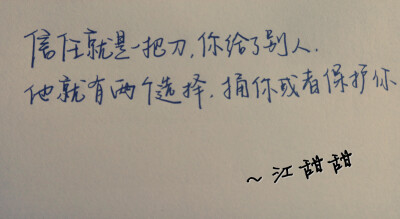 信任就是一把刀,你给了别人,
他就有两个选择,捅你或者保护你
~江甜甜